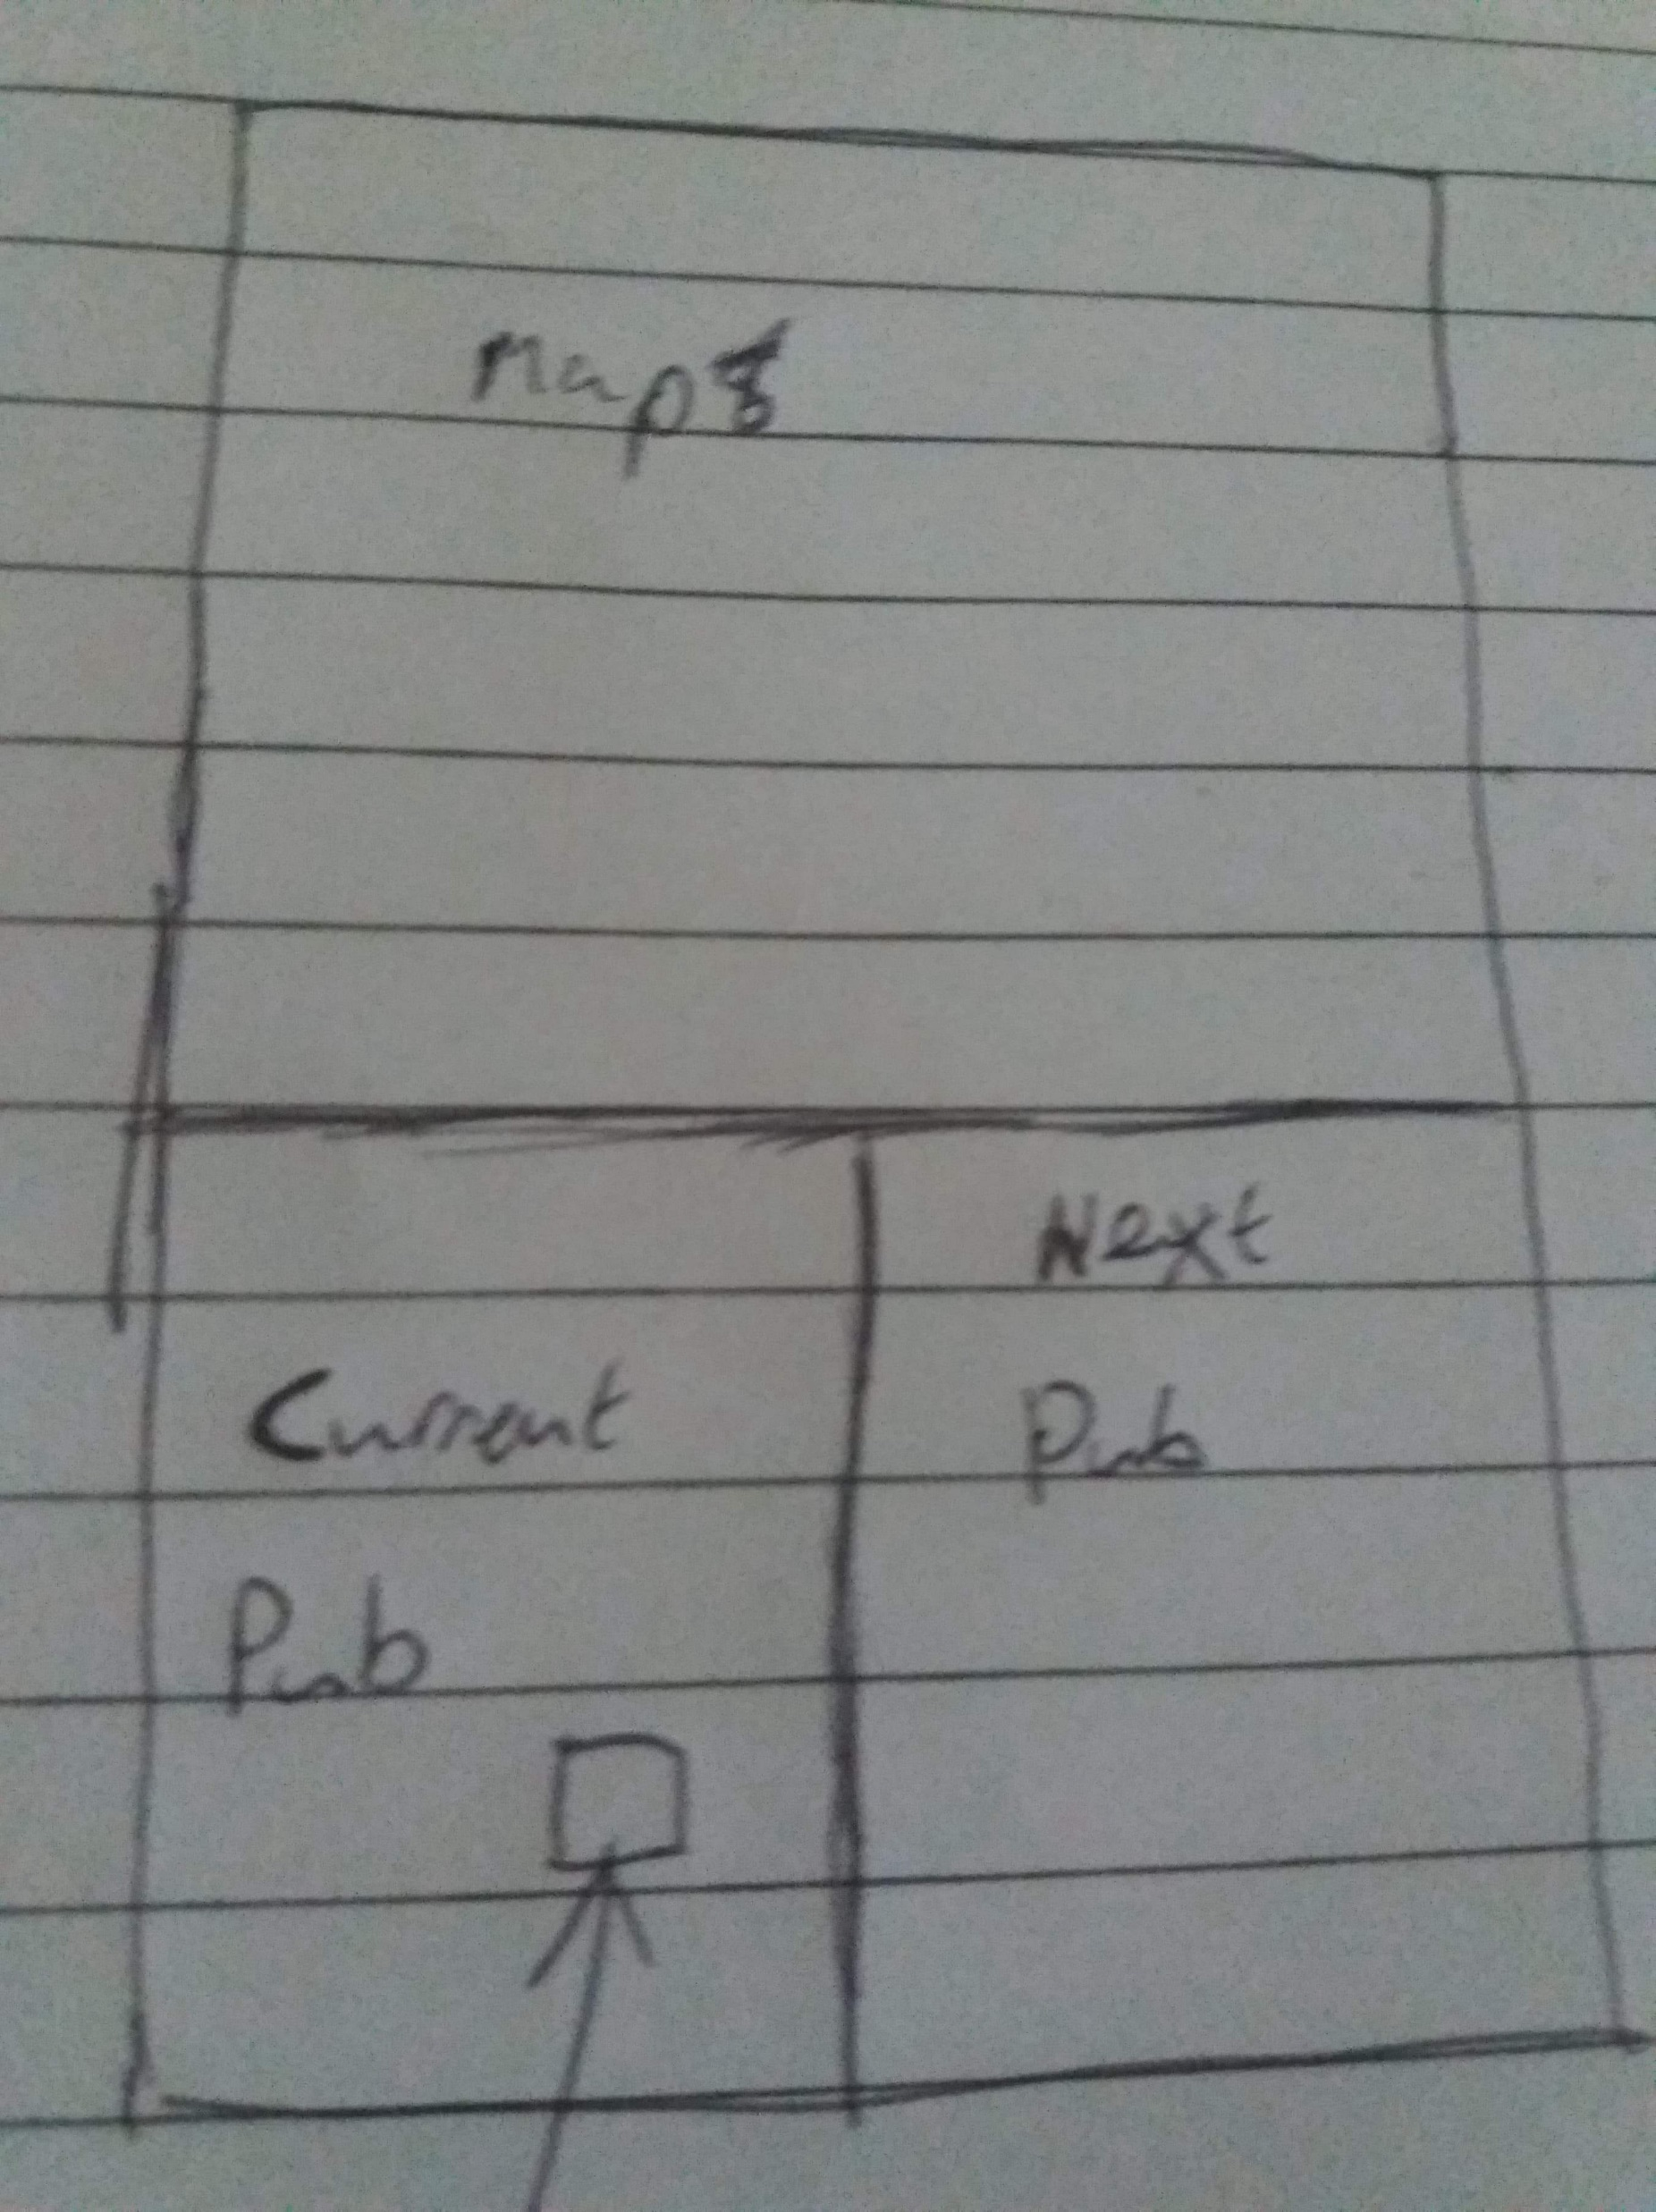 Map
Current
Pub
Next
Pub